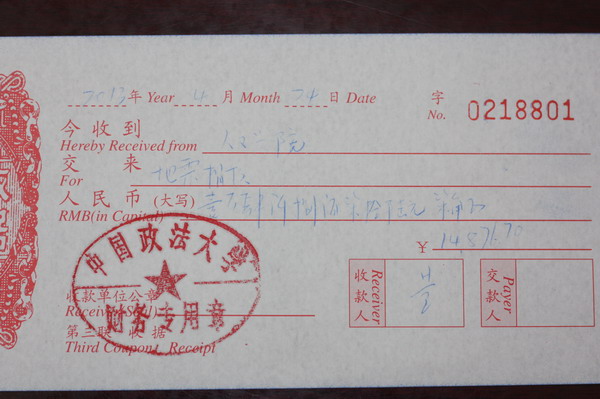 2013年 Year 4 月 Month 24 日 Date
字
No. 0218801
今收到
Hereby Received from 院
交 来
For 地震捐款
人民币 (大写) 壹 肆 捌
RMB(in Capital)
¥ 14876.70
中国政法大学
财务专用章
收款单位公章
Receiver(Seal)
第三联 收据
Third Coupon, Receipt
收款人 Receiver
交款人 Payer